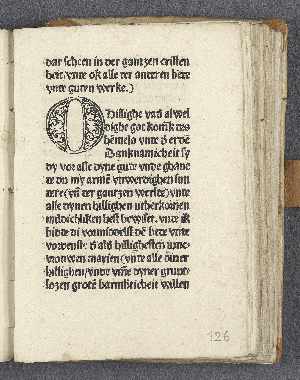 dar scheen in der gantzen cristen
heit vnte ofk alle ter anteren bete
vnte guten werke.)
O hillighe vnd alwel
dighe got konik des
hēmels vnte d' erdē
Danknamicheit sy
dy vor alle dyne gute vnde ghana
te du my armē vnwerdighen sun
tere (vn ter gantzen werlt) vnte
alle dynen hillighen vtherkornen
mildichliken hest bewiset. vnte ik
bidde di vormiddelst dē bete vnte
vordenst d' alder hillighesten iunc
vrouwen marien (vnte alle diner
hillighen) vnde vme dyner grunt
lozen grotē barmherticheit willen
126